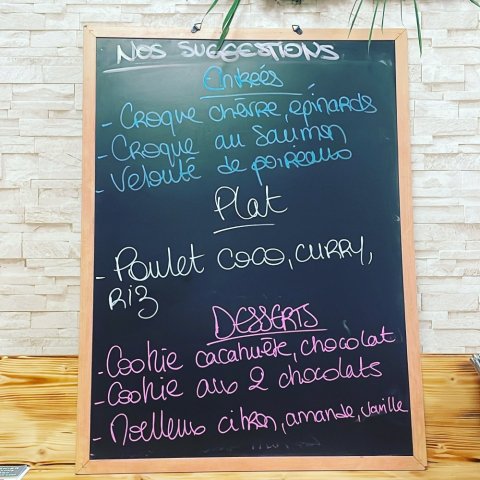 NOS SUGGESTIONS
Entrées
- CROQUE CHÈVRE, épinards
- CROQUE au Saumon
- Velouté de poireaux
Plat
- Poulet COCO, CURRY,
RIZ
DESSERTS
- Cookie cacahuète, chocolat
- Cookie aux 2 chocolats
- Moelleux citron, amande, vanille